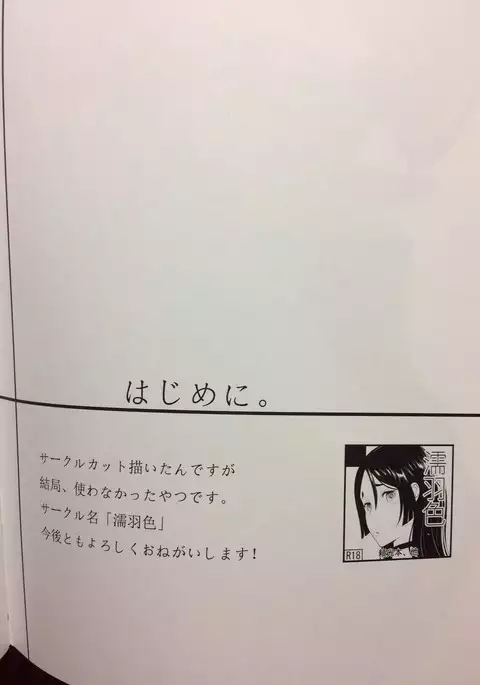 はじめに。
サークルカット描いたんですが
結局、使わなかったやつです。
サークル名「濡羽色」
今後ともよろしくおねがいします!
濡羽色
R18